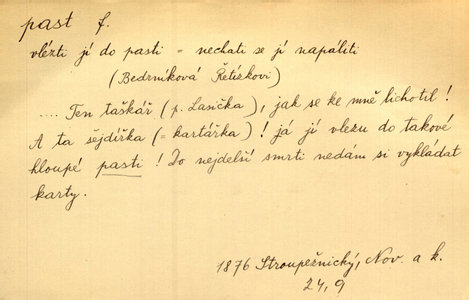 past f.
vlézti jí do pasti = nechati se jí napáliti
(Bedrníková Řetízkovi)
.... Ten taškář (p. Lasička), jak se ke mně lichotil!
A ta šejdířka (= kartářka)! já jí vlezu do takové
hloupé pasti! Do nejdelší smrti nedám si vykládat
karty.
1876 Stroupežnický, Nov. a k.
24, 9